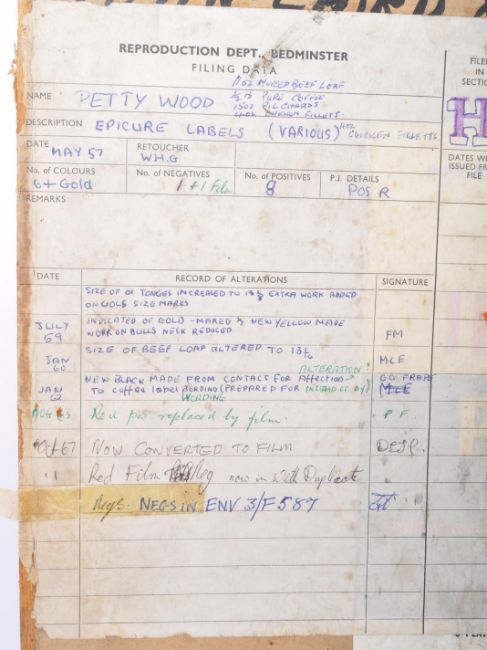 REPRODUCTION DEPT., BEDMINSTER
FILING DATA
FILED
IN
SECTION
NAME PETTY WOOD
11oz MINCED BEEF LOAF
PURE COFFEE
15oz PILCHARDS
4oz CHICKEN FILLETS
DESCRIPTION EPICURE LABELS (VARIOUS) CHICKEN FILLETS
H
DATE MAY 57
RETOUCHER W.H.G
DATES WHEN
ISSUED FROM
FILE
No. of COLOURS 6 + Gold
No. of NEGATIVES 1 + 1 Film
No. of POSITIVES 8
P.I. DETAILS POS R
REMARKS
DATE
RECORD OF ALTERATIONS
SIGNATURE
SIZE OF OX TONGES INCREASED TO EXTRA WORK ADDED
ON GOLD SIZE MARKS
JULY 59
OF GOLD NEW YELLOW MADE
WORK ON BULLS NECK REDUCED
FM
JAN 60
SIZE OF BEEF LOAF ALTERED TO
MLE
ALTERATION!
JAN 62
NEW BLACK MADE FROM CONTACT FOR
TO coffee label (PREPARED FOR INSTEAD OF BY)
WORDING
MLE
AUG 65 Red pos replaced by film. P.F.
Oct 67 NOW CONVERTED TO FILM
" Red Film Neg now in with Duplicate
Negs. NEGS IN ENV 3/F 587